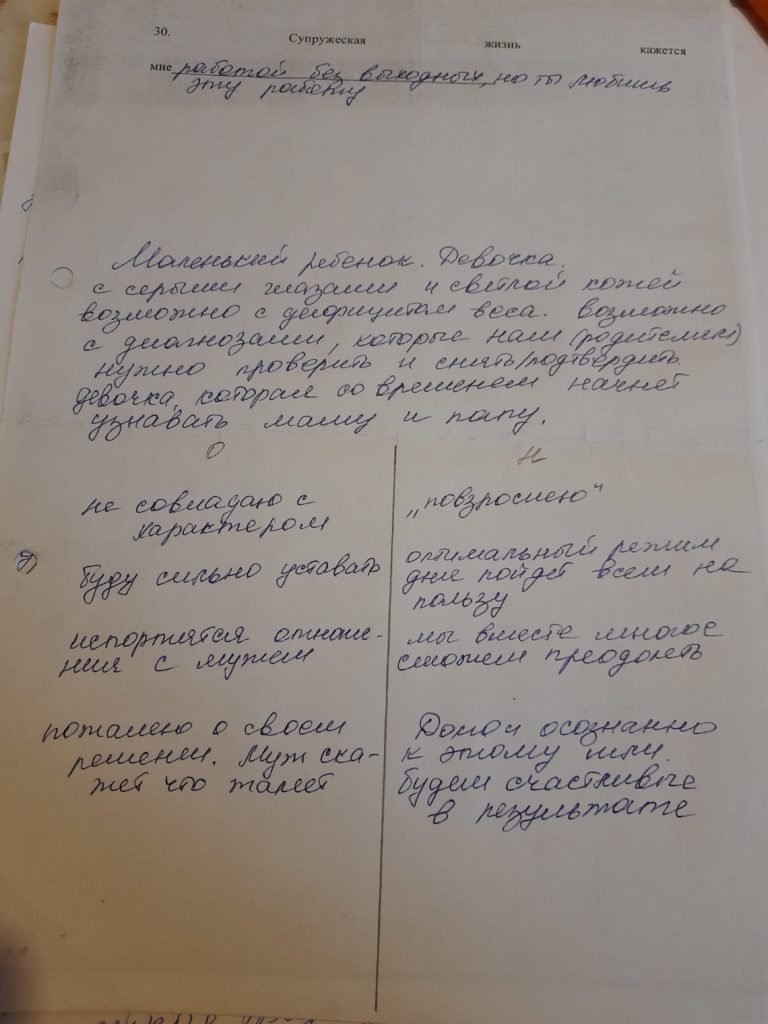 30.
Супружеская жизнь кажется
мне работой без выходных, но ты любишь
эту работу
Маленький ребенок. Девочка.
с серыми глазами и светлой кожей
возможно с дефицитом веса. возможно
с диагнозами, которые нам (родителям)
нужно проверить и снять/подтвердить.
девочка, которая со временем начнет
узнавать маму и папу.
О
Н
не совпадаю с
характером
"повзрослею"
7)
буду сильно уставать
оптимальный режим
дня пойдет всем на
пользу
испортятся отноше-
ния с мужем
мы вместе многое
сможем преодолеть
пожалею о своем
решении. Муж ска-
жет что жалеет
осознанно
к этому шли.
будем счастливые
в результате